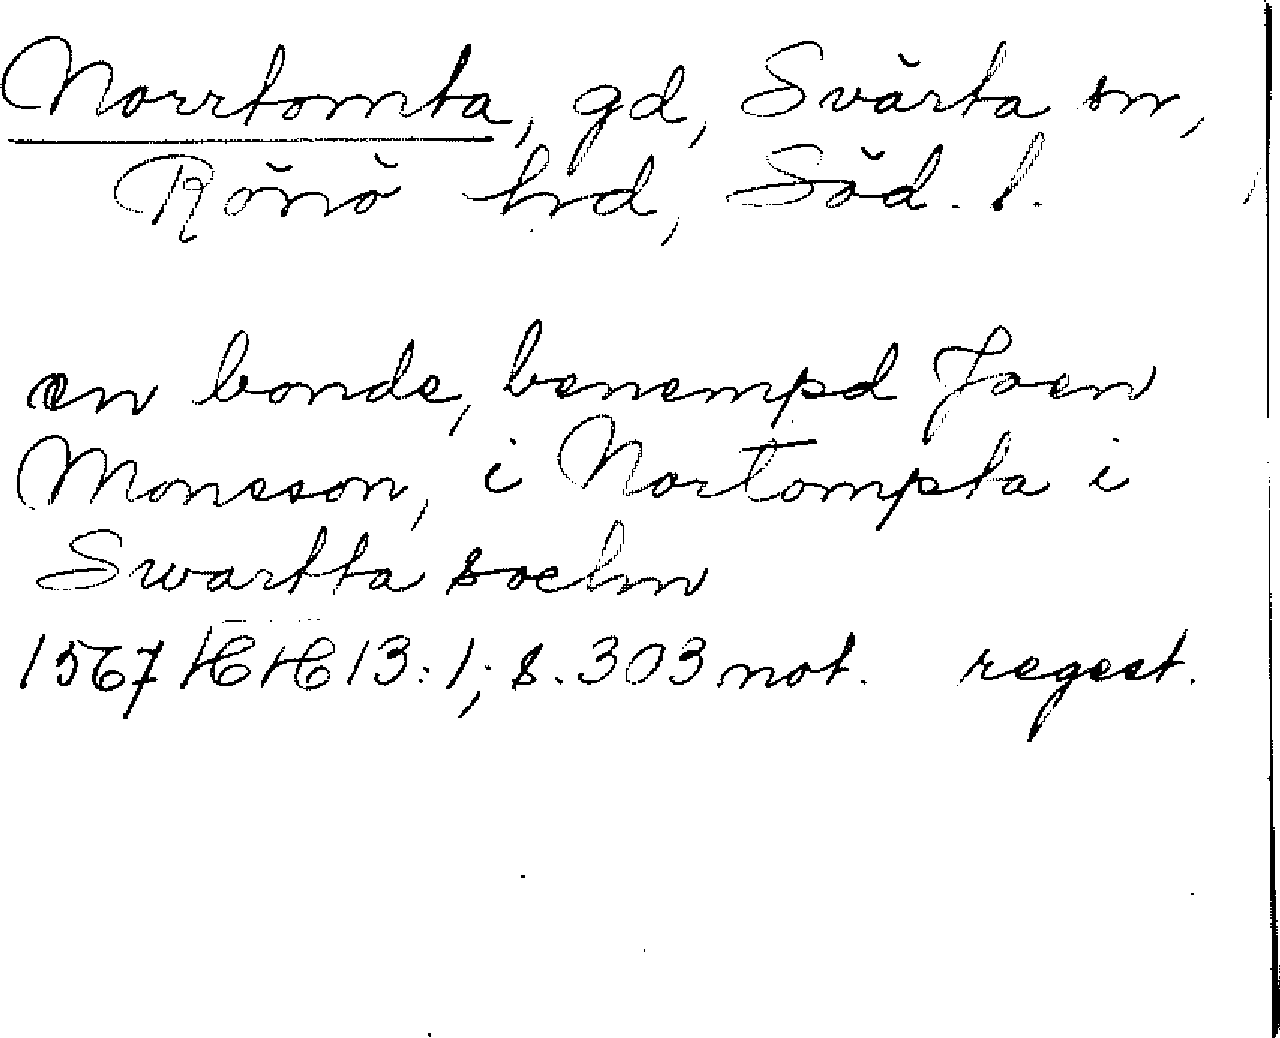 Norrtomta, gd, Svärta sn,
Rönö hrd, Söd. l.
en bonde, benempd Joen
Monsson, i Nortompta i
Swartta sochn
1567 HH 13:1; s. 303 not. regest.